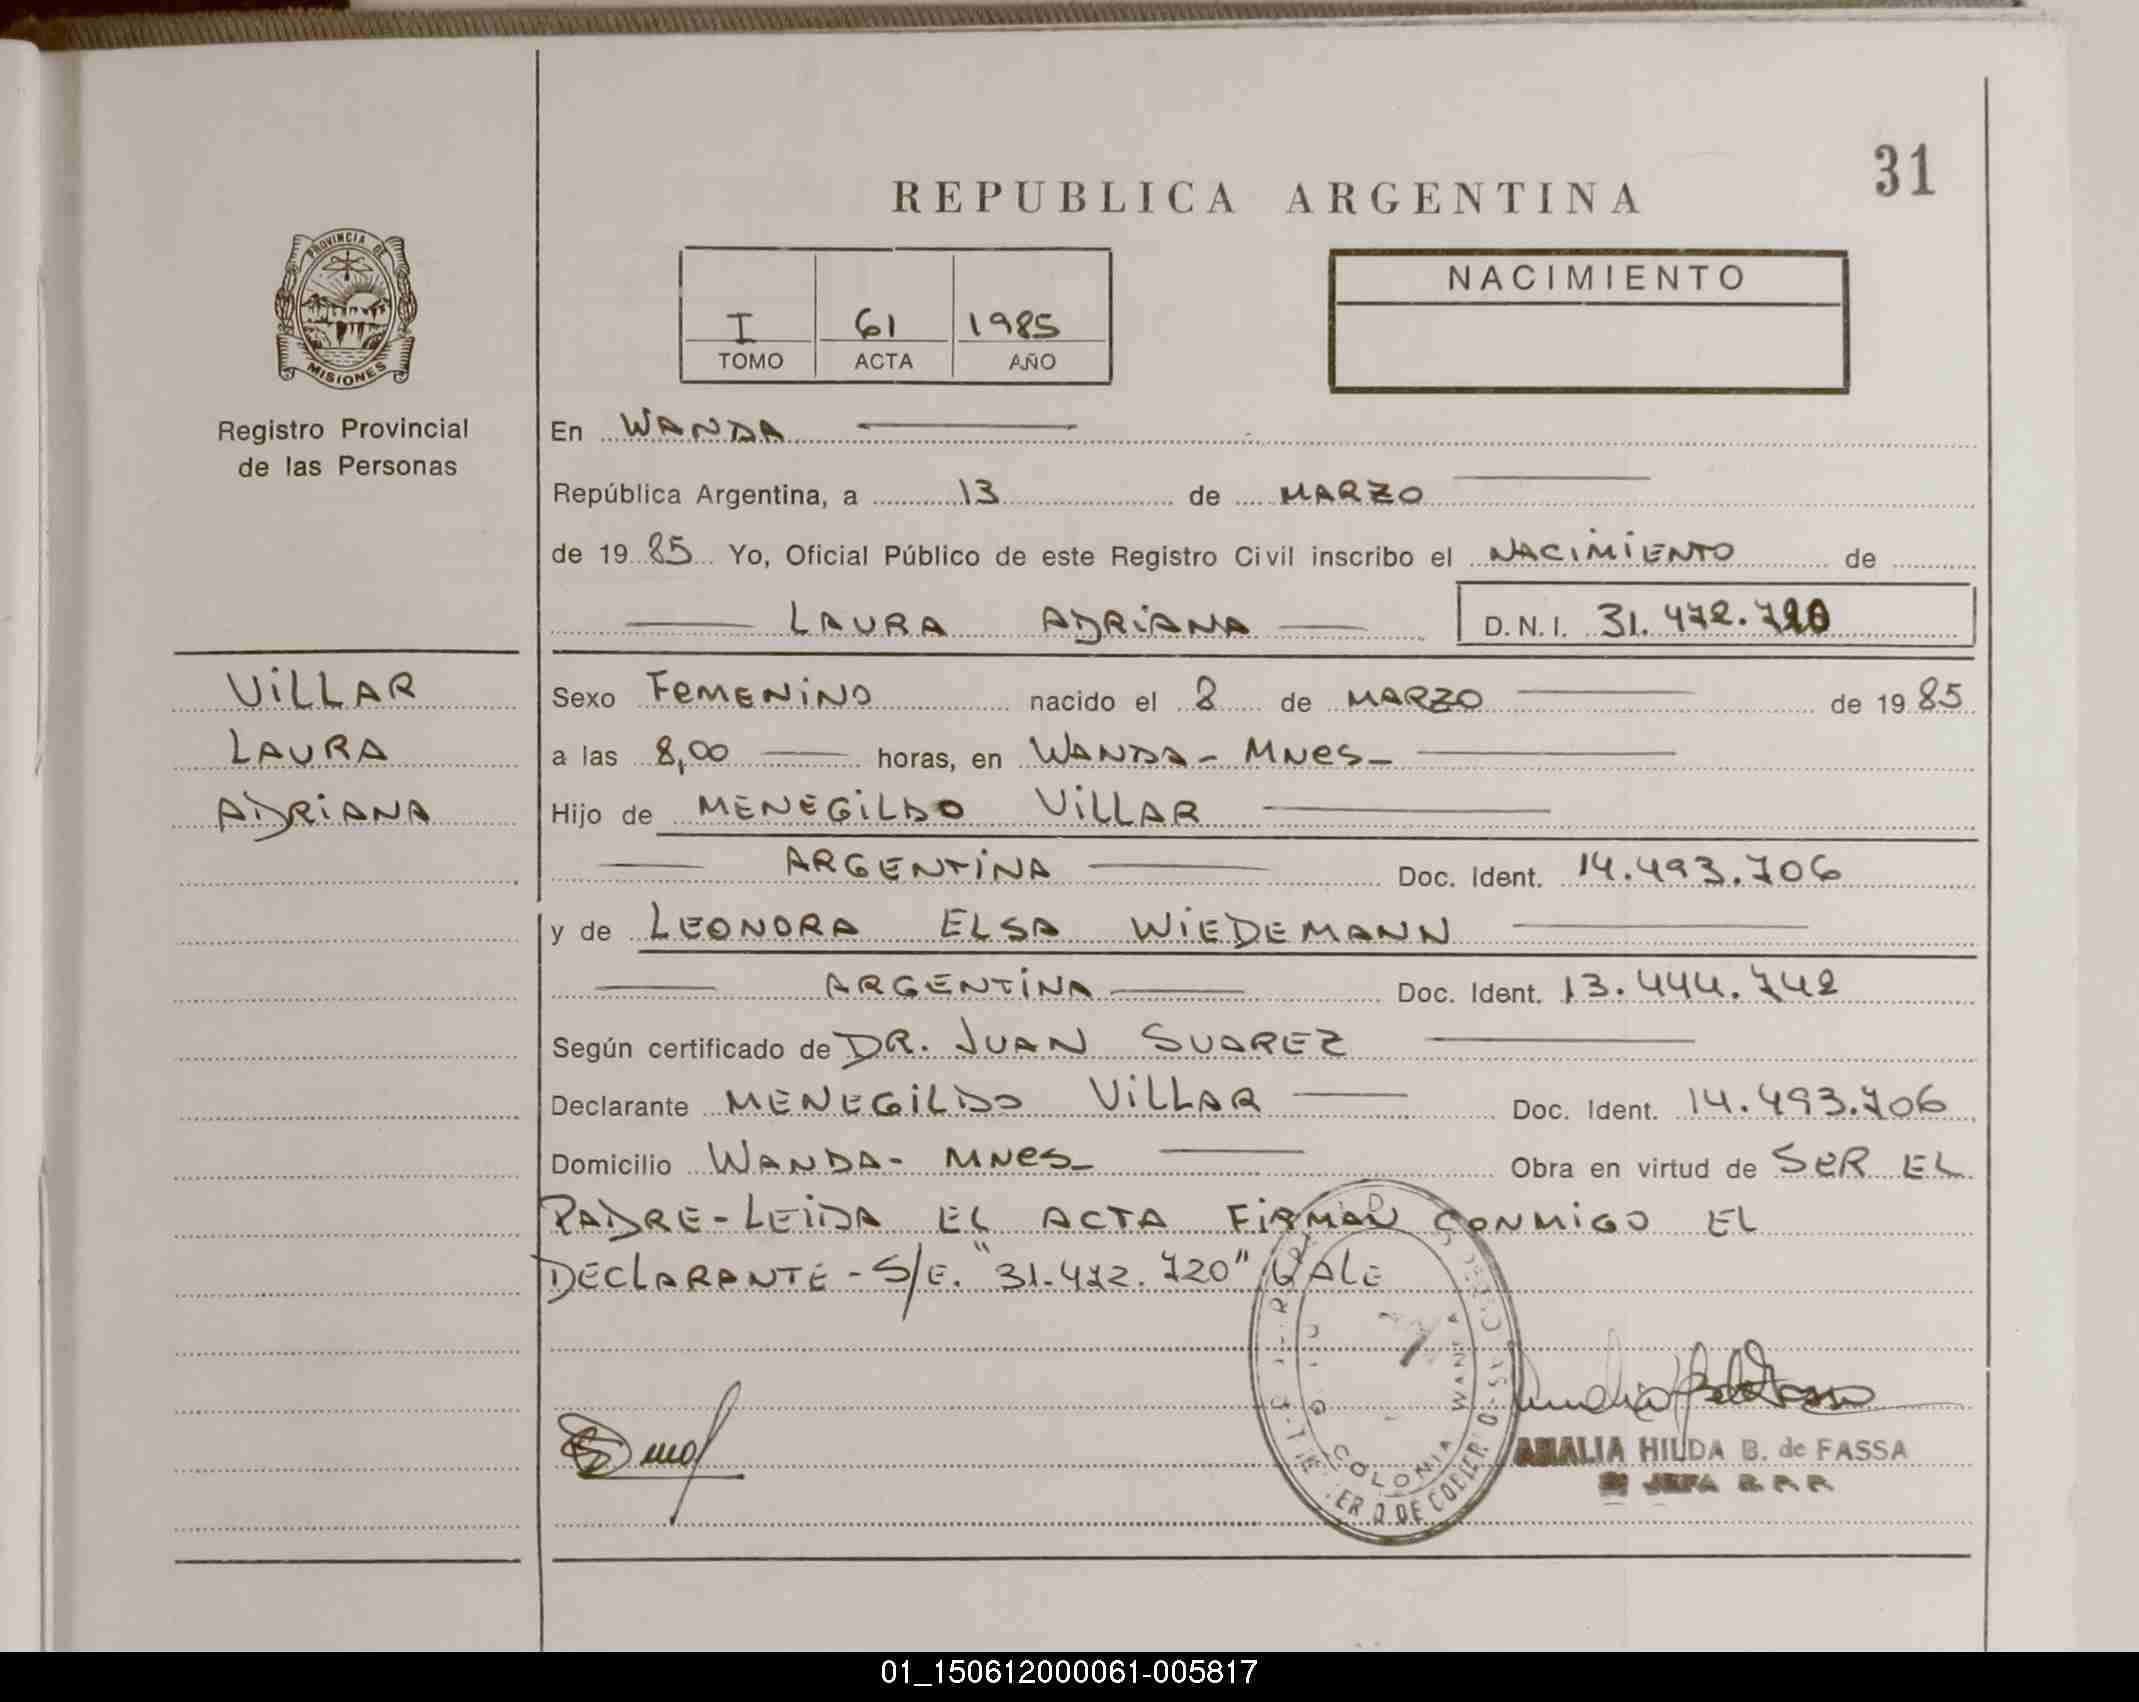 REPUBLICA ARGENTINA
31
PROVINCIA DE
MISIONES
Registro Provincial
de las Personas
I 61 1985
TOMO ACTA AÑO
NACIMIENTO
En WANDA
República Argentina, a 13 de MARZO
de 1985 Yo, Oficial Público de este Registro Civil inscribo el NACIMIENTO de
LAURA ADRIANA D.N.I. 31.472.720
VILLAR
LAURA
ADRIANA
Sexo FEMENINO nacido el 8 de MARZO de 1985
a las 8,00 horas, en WANDA - MNES -
Hijo de MENEGILDO VILLAR
ARGENTINA Doc. Ident. 14.493.706
y de LEONORA ELSA WIEDEMANN
ARGENTINA Doc. Ident. 13.444.742
Según certificado de DR. JUAN SUAREZ
Declarante MENEGILDO VILLAR Doc. Ident. 14.493.706
Domicilio WANDA - MNES - Obra en virtud de SER EL
PADRE - LEIDA EL ACTA FIRMAN CONMIGO EL
DECLARANTE - S/E. "31.472.720" VALE
COLONIA WANDA
DE GOBIERNO
AMALIA HILDA B. de FASSA
JEFA
01_150612000061-005817